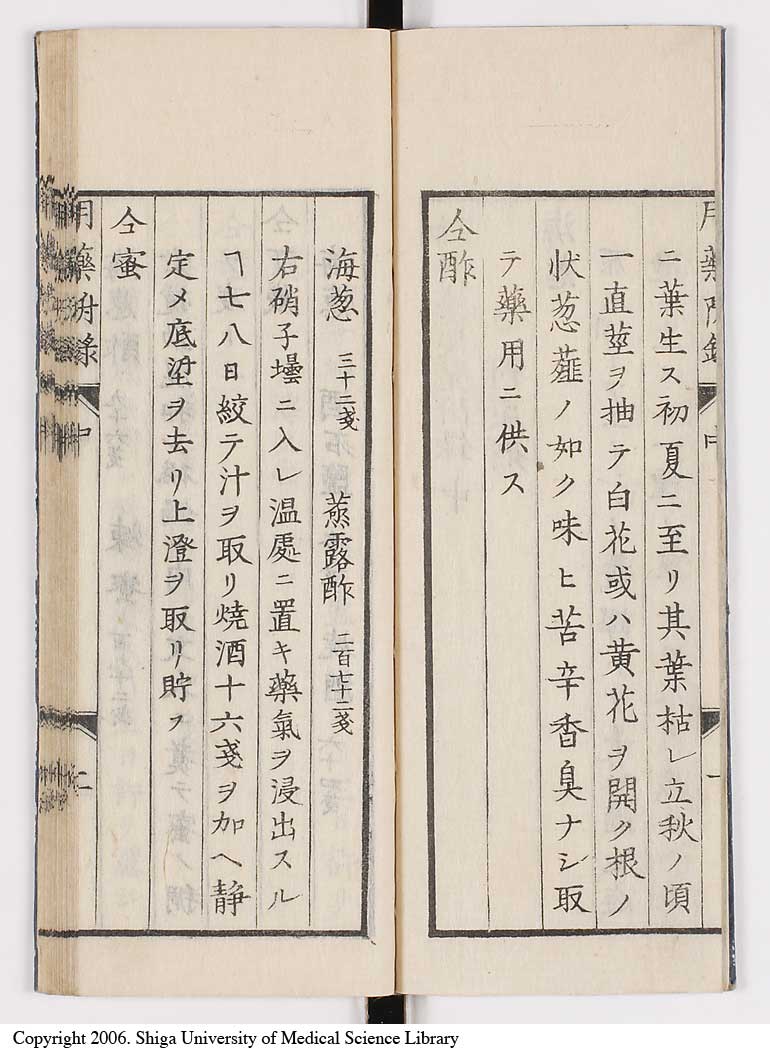 用藥附錄 中 一
ニ葉生ス初夏ニ至リ其葉枯レ立秋ノ頃
一直莖ヲ抽テ白花或ハ黄花ヲ開ク根ノ
状葱薤ノ如ク味ヒ苦辛香臭ナシ取
テ藥用ニ供ス
仝酢
海葱 三十二戔 蒸露酢 二百七十二戔
右硝子壜ニ入レ温處ニ置キ藥氣ヲ浸出スル
ヿ七八日絞テ汁ヲ取リ焼酒十六戔ヲ加ヘ静
定メ底垽ヲ去リ上澄ヲ取リ貯フ
仝蜜
用藥附錄 中 二
Copyright 2006. Shiga University of Medical Science Library